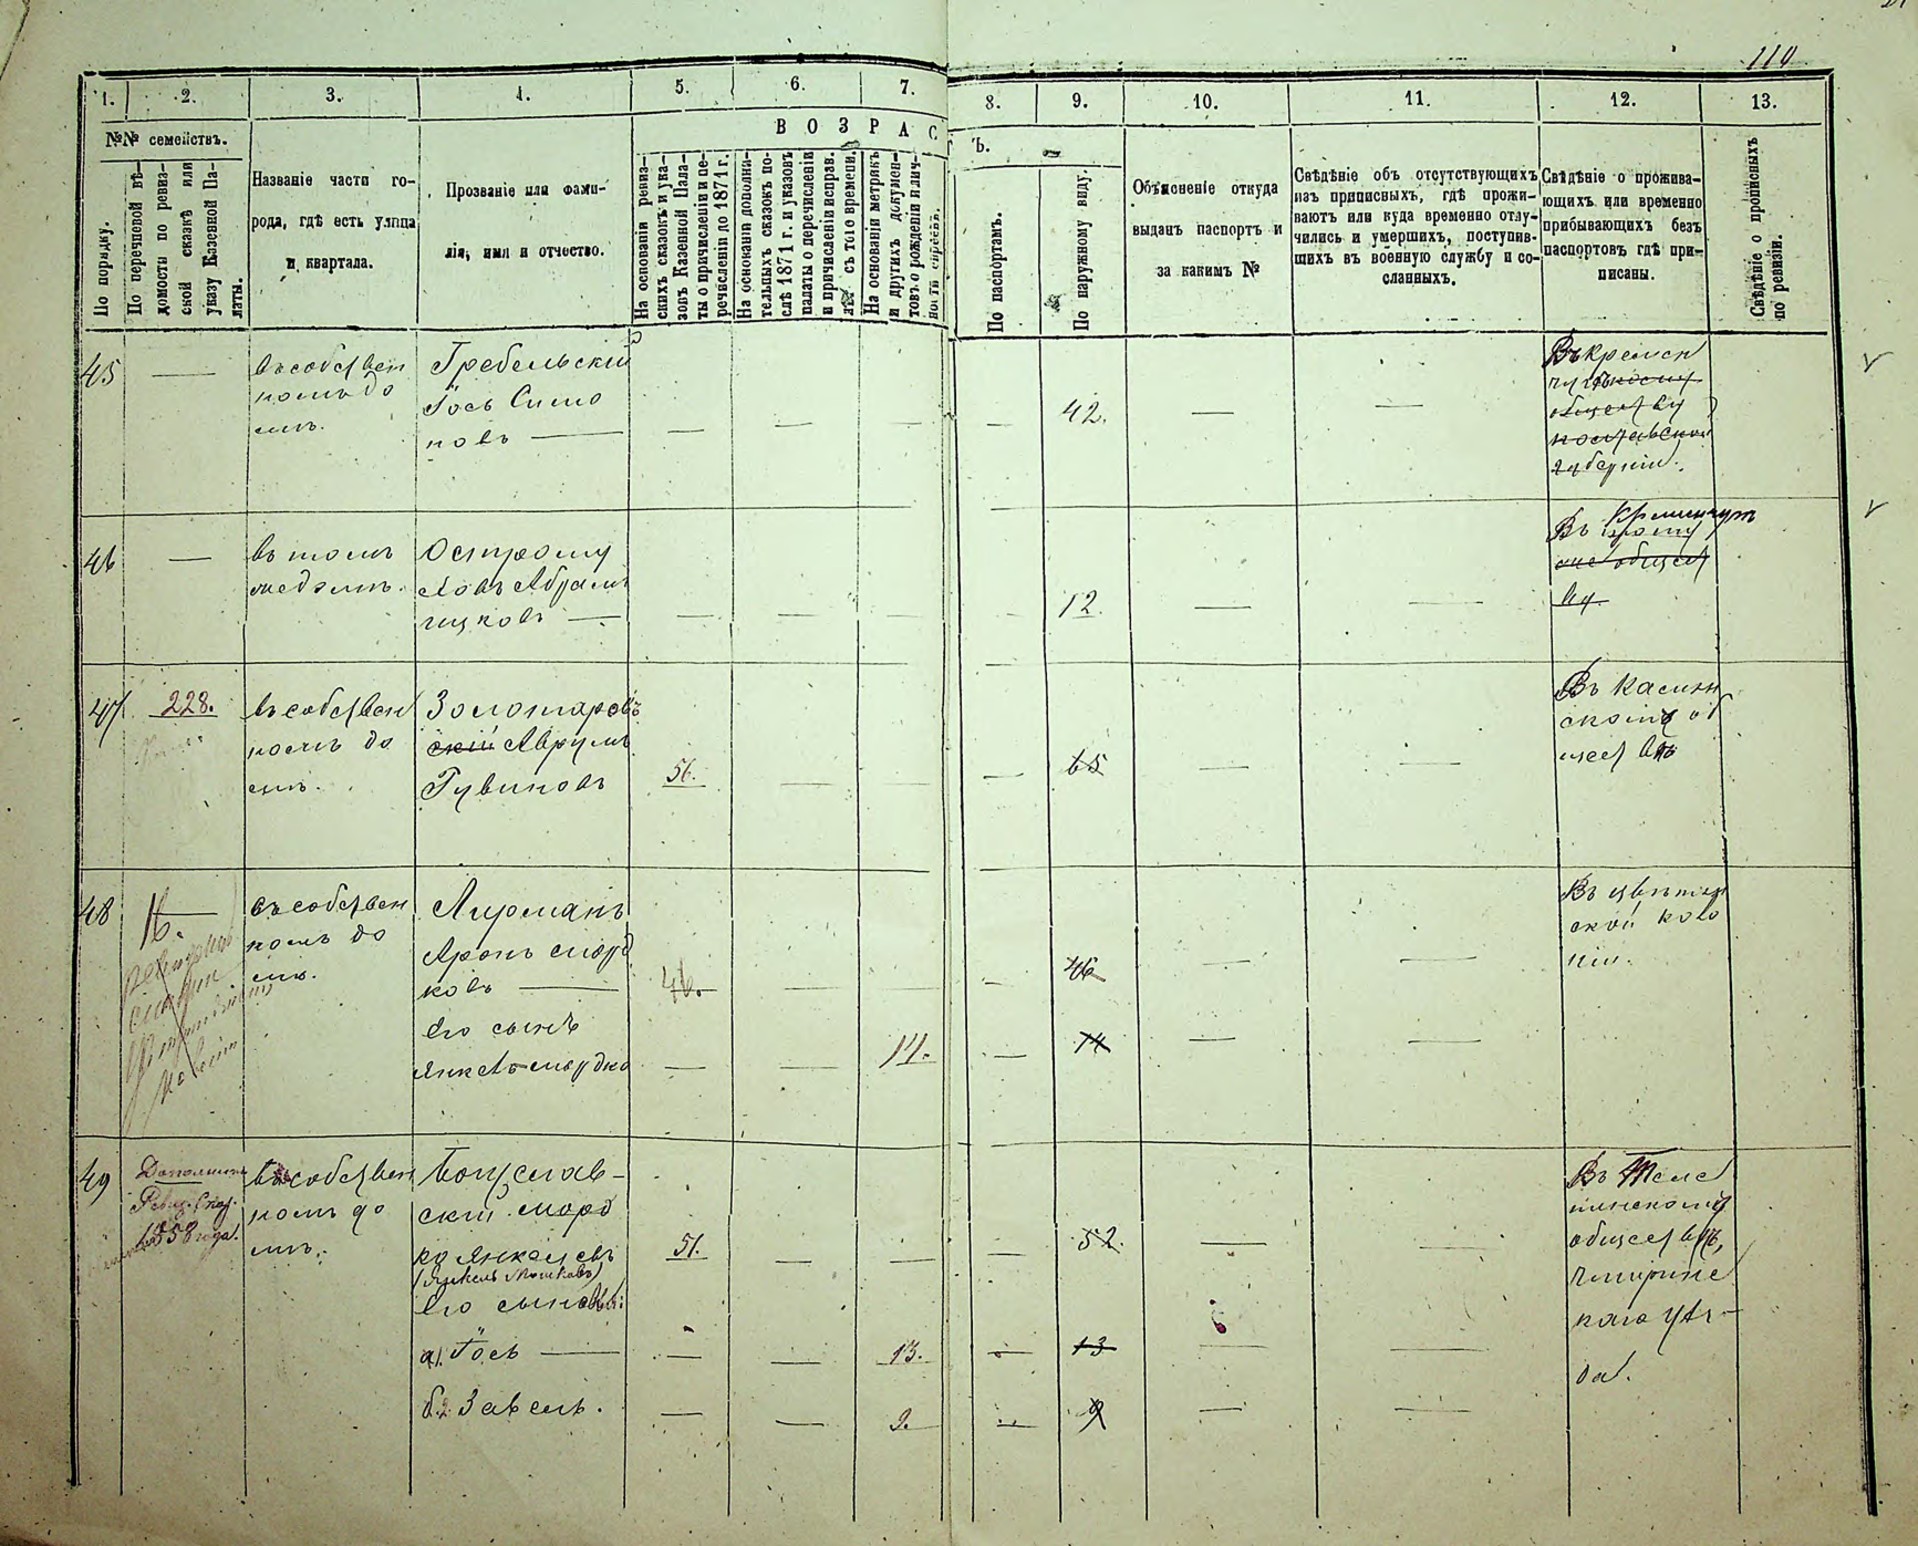 110
1.
2.
3.
4.
5.
6.
7.
8.
9.
10.
11.
12.
13.
№№ семействъ.
ВОЗРАС
Ъ.
По порядку.
По перечневой вѣ-
домости по ревиз-
ской сказкѣ или
указу Казенной Па-
латы.
Названіе части го-
рода, гдѣ есть улица
и квартала.
Прозваніе или фами-
лія, имя и отчество.
На основаніи ревиз-
скихъ сказокъ и ука-
зовъ Казенной Пала-
ты о причисленіи и пе-
речисленіи до 1871 г.
На основаніи дополни-
тельныхъ сказокъ по-
слѣ 1871 г. и указовъ
палаты о перечисленіи
и причисленіи исправ.
съ того времени.
На основаніи метрикъ
и другихъ докумен-
товъ о рожденіи и лич-
По паспортамъ.
По наружному виду.
Объясненіе откуда
выданъ паспортъ и
за какимъ №
Свѣдѣніе объ отсутствующихъ
изъ приписныхъ, гдѣ прожи-
ваютъ или куда временно отлу-
чились и умершихъ, поступив-
шихъ въ военную службу и со-
сланныхъ.
Свѣдѣніе о прожива-
ющихъ или временно
прибывающихъ безъ
паспортовъ гдѣ при-
писаны.
Свѣдѣніе о прописныхъ
по ревизіи.
45
—
въ собствен
номъ до
мѣ.
Гребельскій
Іось Симо
новъ —
—
—
—
—
42.
—
—
Въ Кремен
чугскому
обществу
полтавской
губерніи.
46
—
въ томъ
же домѣ.
Острому
Абрамъ
—
—
—
12.
—
—
Въ
же общест
ву.
47
228.
въ собствен
номъ до
мѣ.
Золотарев
скій Аврумъ
Рувиновъ
56.
—
—
65
—
—
Въ
скому об
ществѣ
48
16.
въ собствен
номъ до
мѣ.
Лирманъ
Аронъ Морд
ковъ —
46.
—
—
46
—
—
Въ
ской коло
ніи.
его сынъ
Янкель-Мордко
—
—
11.
—
14
—
—
49
Ревиз. Сказ.
1858 года.
въ собствен
номъ до
мѣ.
Богуслав-
скій Морд
ко Янкелевъ
(Янкель Мошковъ)
51.
—
—
—
52.
—
—
Въ Теле
пинскому
обществѣ,
Чигиринс
каго уѣз-
да.
его сыновья:
а) 1. Іось —
—
—
13.
—
13
—
—
б. 2. Завель.
—
—
9.
—
9
—
—